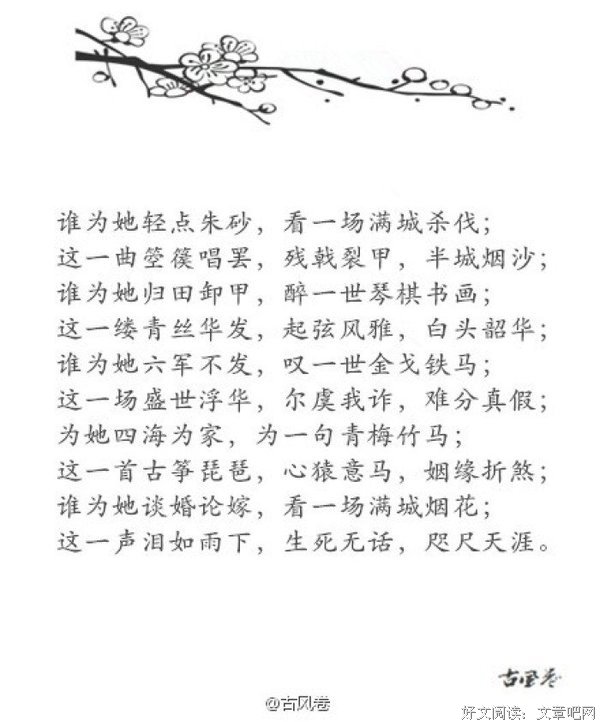 谁为她轻点朱砂，看一场满城杀伐；
这一曲箜篌唱罢，残戟裂甲，半城烟沙；
谁为她归田卸甲，醉一世琴棋书画；
这一缕青丝华发，起弦风雅，白头韶华；
谁为她六军不发，叹一世金戈铁马；
这一场盛世浮华，尔虞我诈，难分真假；
为她四海为家，为一句青梅竹马；
这一首古筝琵琶，心猿意马，姻缘折煞；
谁为她谈婚论嫁，看一场满城烟花；
这一声泪如雨下，生死无话，咫尺天涯。
古风卷
@古风卷
好文阅读：文章吧网